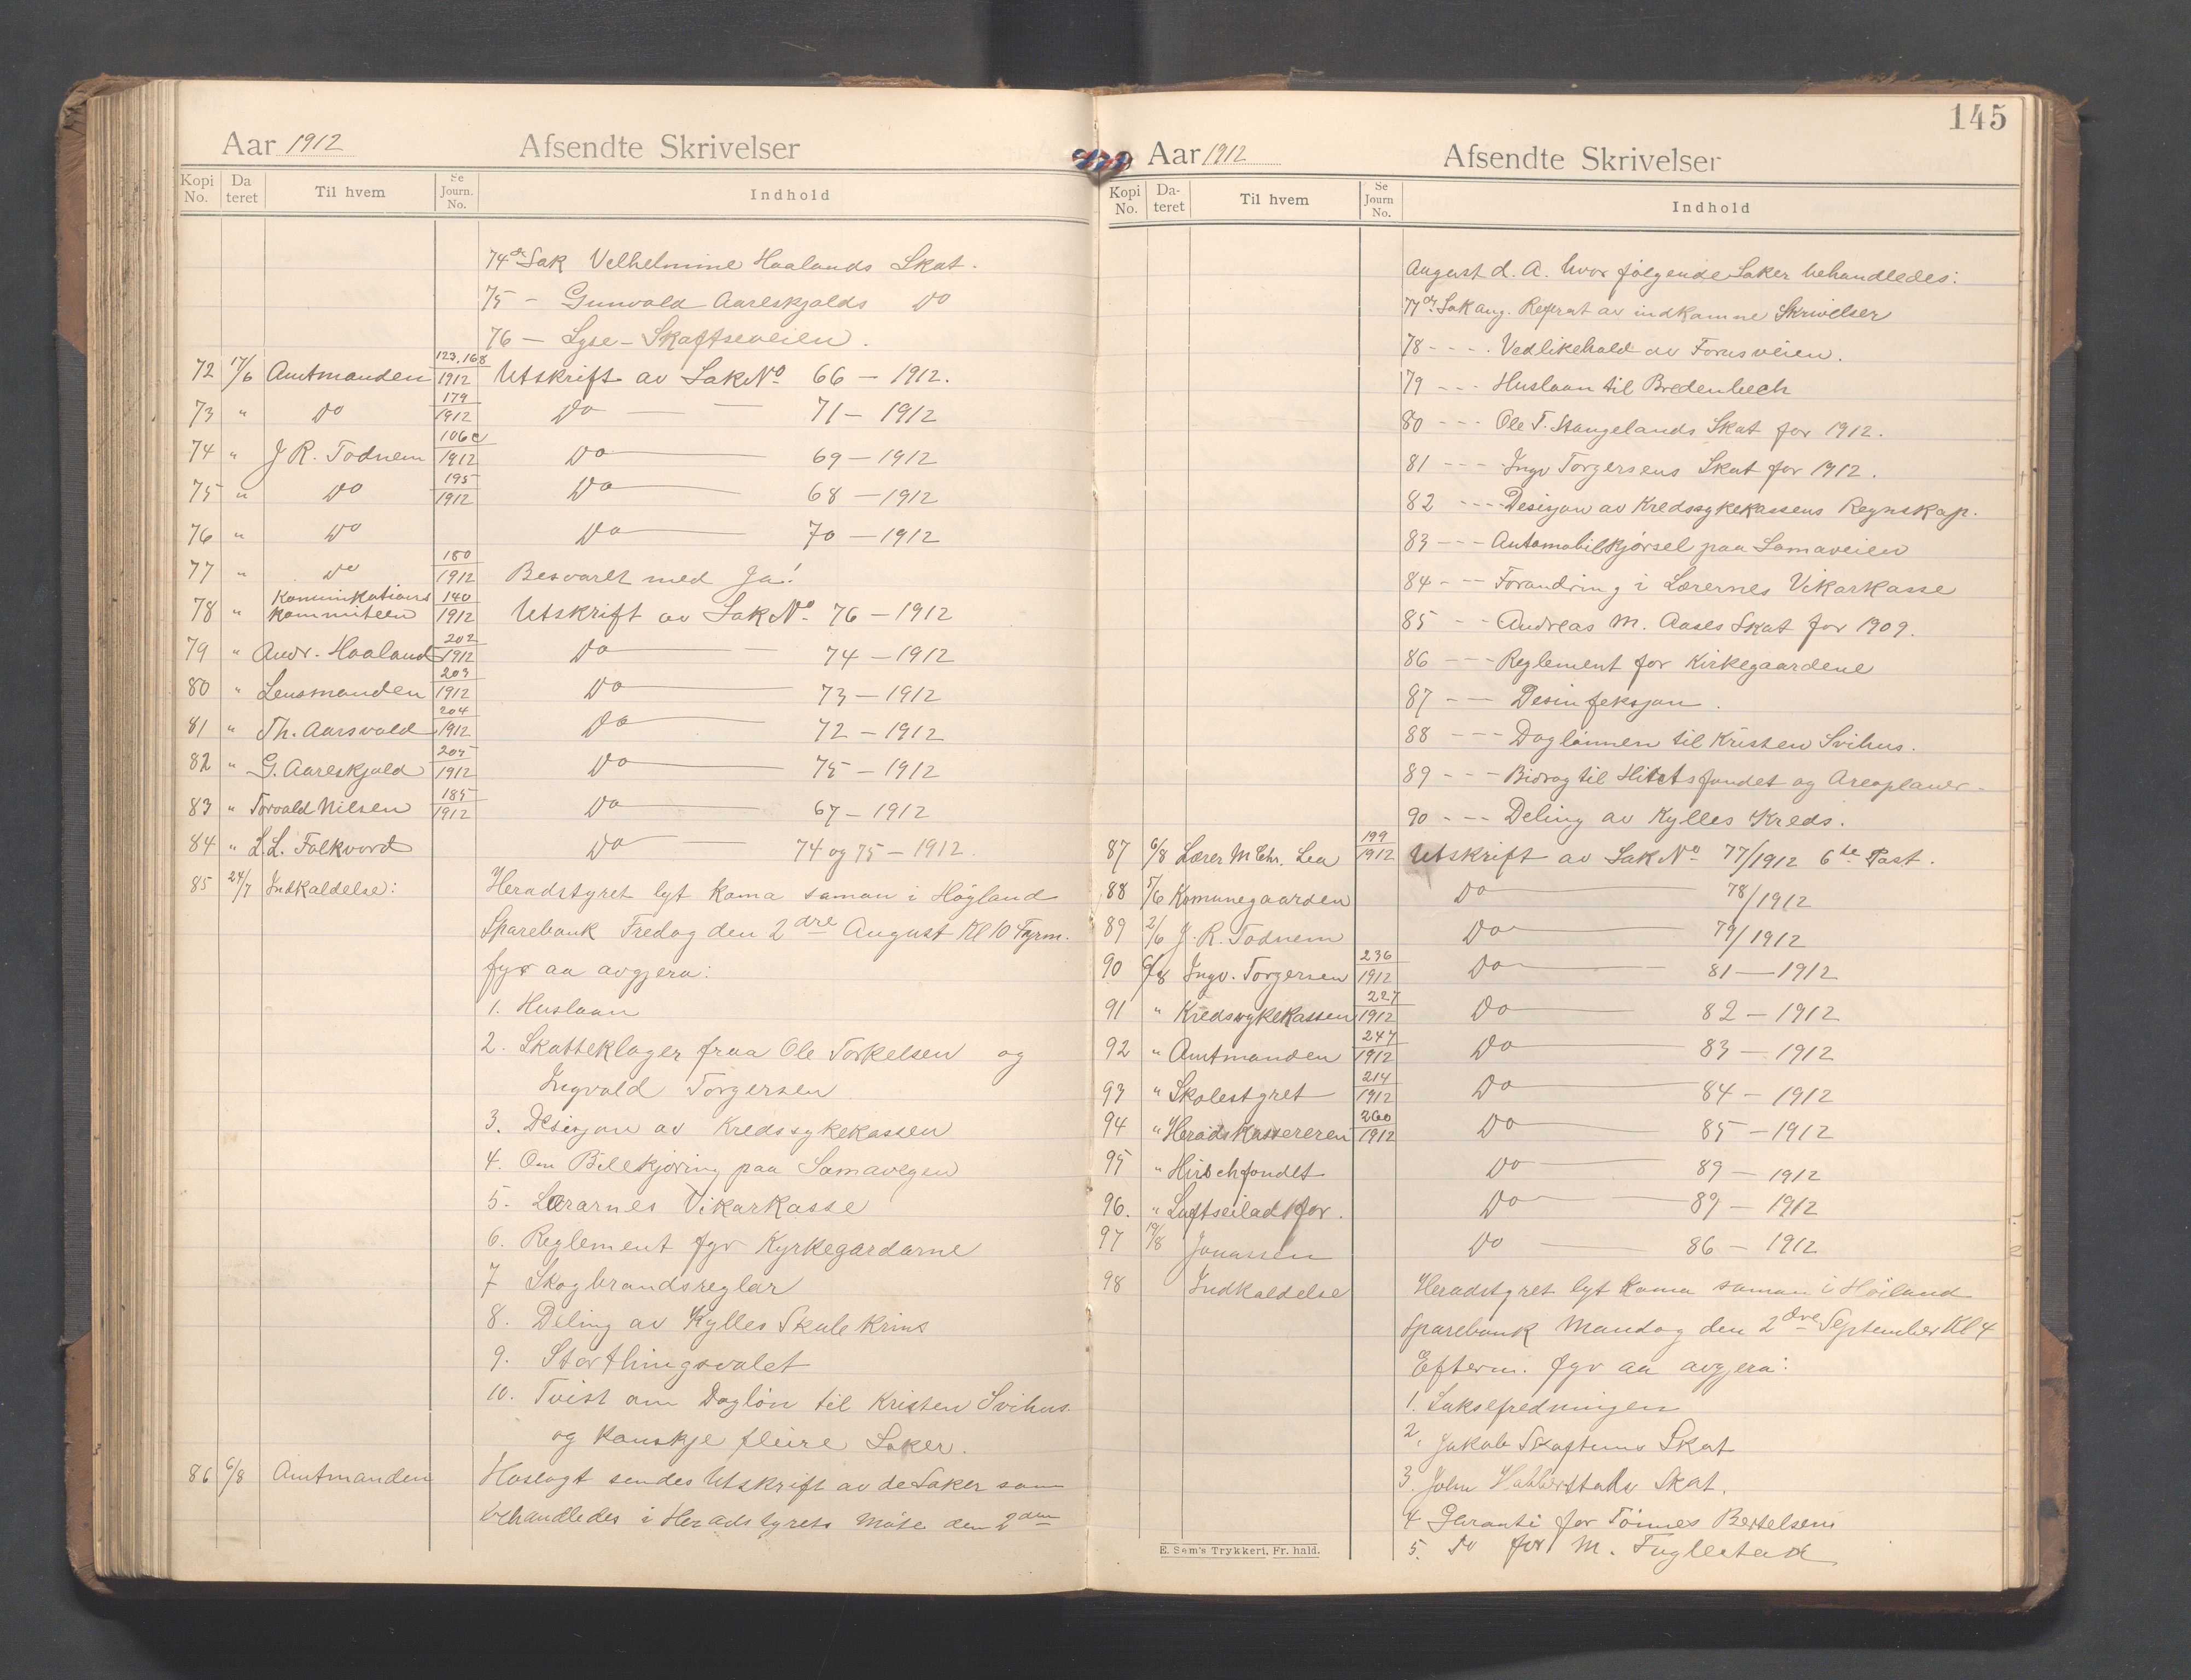 Aar 1912 Afsendte Skrivelser
Kopi No. Da teret Til hvem Se Journ. No. Indhold
74de Sak Velhelmine Haalands Skat.
75 - Gunvald Aareskjolds Do
76 - Lyse - Skaftseveien.
72 17/6 Amtmanden 123,168/1912 Utskrift av Sak No 66 - 1912.
73 " Do 179/1912 Do 71 - 1912
74 " J R. Todnem 106e/1912 Do 69 - 1912
75 " Do 195/1912 Do 68 - 1912
76 " Do Do 70 - 1912
77 " Do 180/1912 Besvaret med Ja!
78 " Komunikations kommiteen 140/1912 Utskrift av Sak No. 76 - 1912
79 " Andr. Haaland 202/1912 Do 74 - 1912
80 " Lensmanden 203/1912 Do 73 - 1912
81 " Th. Aarsvold 204/1912 Do 72 - 1912
82 " G. Aareskjold 205/1912 Do 75 - 1912
83 " Torvald Nilsen 185/1912 Do 67 - 1912
84 " L.L. Folkvord Do 74 og 75 - 1912.
85 24/7 Indkaldelse: Heradstyret lyt koma saman i Høgland
Sparebank Fredag den 2dre August Kl 10 Fyrm.
fyr aa avgjera:
1. Huslaan
2. Skatteklager fraa Ole Torkelsen og
Ingvald Torgersen
3. Desisjon av Kredssykekassen
4. Om Bilkjøring paa Somavegen
5. Lærarnes Vikarkasse
6. Reglement fyr Kyrkegardarne
7 Skogbrandsreglar
8. Deling av Kylles Skule Krins
9. Storthingsvalet
10. Tvist om Dagløn til Kristen Svihus.
og kanskje fleire Saker.
86 6/8 Amtmanden Hoslagt sendes Utskrift av de Saker som
behandledes i Heradstyrets Møte den 2den
145
Aar 1912 Afsendte Skrivelser
Kopi No. Da- teret Til hvem Se Journ No. Indhold
August d. A. hvor følgende Saker behandledes:
77de Sak ang. Referat av indkomne Skrivelser
78 - - - - Vedlikehold av Forusveien.
79 - - - Huslaan til Bredenbech
80 - - - Ole T. Stangelands Skat for 1912.
81 - - - Ingv Torgersens Skat for 1912.
82 - - - Desisjon av Kredssykekassens Regnskap.
83 - - - Automobilkjørsel paa Somaveien
84 - - - Forandring i Lærernes Vikarkasse
85 - - Andreas M. Aases Skat for 1909.
86 - - - Reglement for Kirkegaardene
87 - - Desinfeksjon.
88 - - - Daglønnen til Kristen Svihus.
89 - - - Bidrag til Hitctsfondet og Areoplaner.
90 - - - Deling av Kylles Kreds.
87 6/8 Lærer M Chr. Lea 199/1912 Utskrift av Sak No 77/1912 6te Post.
88 5/6 Komunegaarden Do 78/1912
89 2/6 J. R. Todnem Do 79/1912
90 6/8 Ingv. Torgersen 236/1912 Do 81 - 1912
91 " Kredssykekassen 227/1912 Do 82 - 1912
92 " Amtmanden 247/1912 Do 83 - 1912
93 " Skolestyret 214/1912 Do 84 - 1912
94 " Heradskassereren 260/1912 Do 85 - 1912
95 " Hirschfondet Do 89 - 1912
96. " Luftseiladsfor. Do 89 - 1912
97 19/8 Jonassen Do 86 - 1912
98 Indkaldelse Heradstyret lyt koma saman i Høiland
Sparebank Mandag den 2dre September Kl 4
Efterm. fyr aa avgjera:
1. Laksefredningen
2. Jakob Skaftuns Skat
3. John Skat.
4 Garanti for Tønnes Bertelsen
5. Do for M. Fuglestad
E. Sem's Trykkeri, Fr.hald.